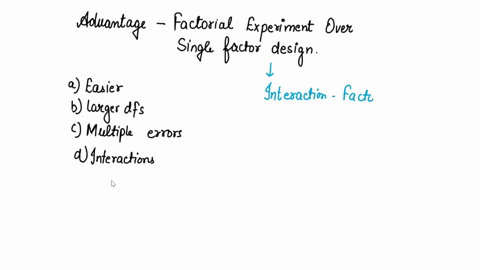 Advantage - Factorial Experiment Over
Single factor design.
↓
Interaction - Fact
a) Easier
b) larger dfs
c) Multiple errors
d) Interactions